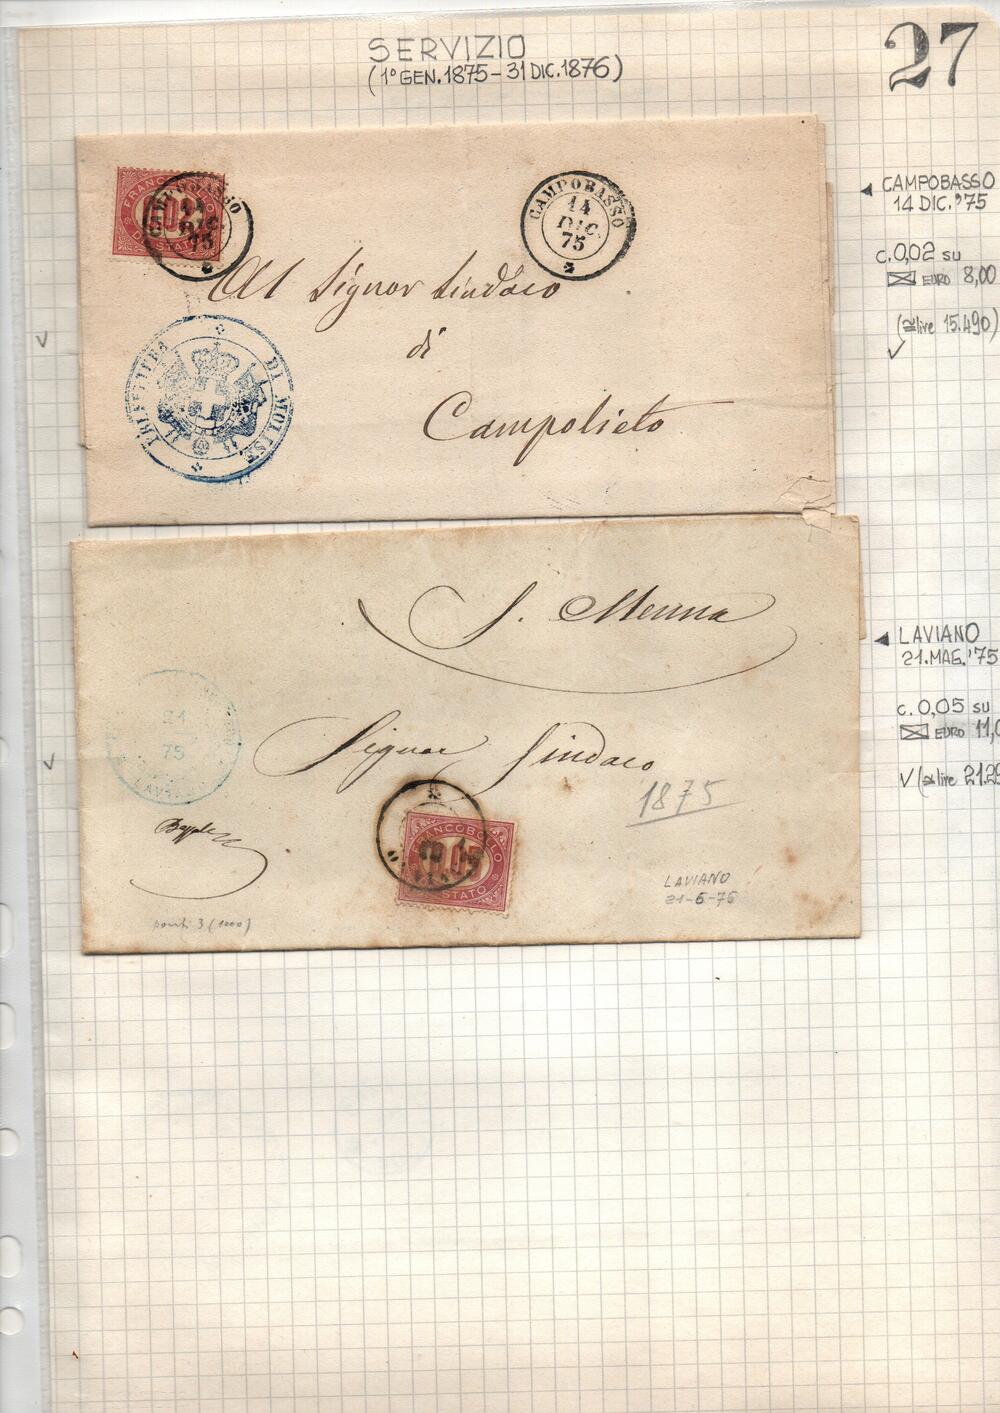 SERVIZIO
(1° GEN. 1875 - 31 DIC. 1876)
27
FRANCOBOLLO
0,02
DI STATO
CAMPOBASSO
14
DIC.
75
CAMPOBASSO
14
DIC.
75
Al Signor Sindaco
di
Campolieto
PREFETTURA DI MOLISE
CAMPOBASSO
14 DIC. '75
c. 0,02 su
EURO 8,00
(≃ lire 15.490)
S. Menna
Signor Sindaco
21
75
LAVIANO
1875
FRANCOBOLLO
0,05
DI STATO
LAVIANO
21-5-75
punti 3 (1000)
LAVIANO
21.MAG.'75
c. 0,05 su
EURO 11,0
(≃ lire 21.29